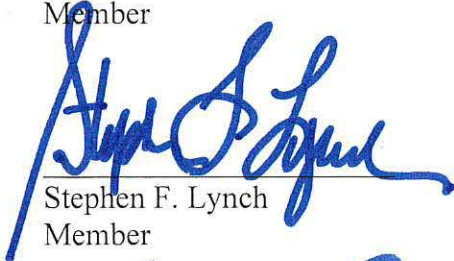 Member
Stephen F. Lynch
Stephen F. Lynch
Member